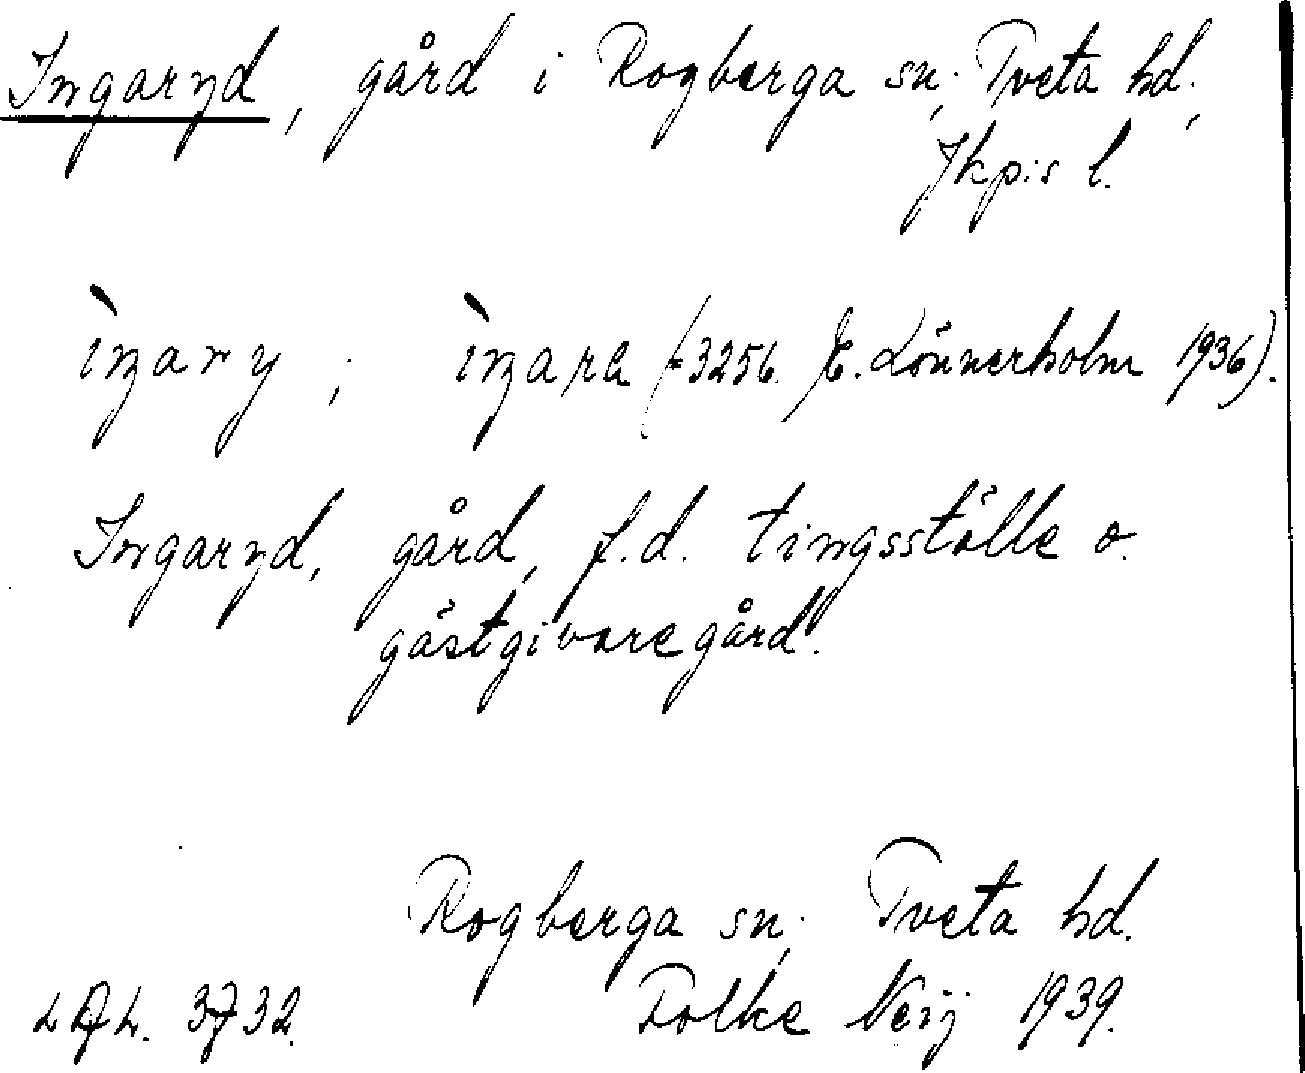 Ingaryd, gård i Rogberga sn; Tveta hd.,
Jkp:s l.
ìŋary ; ìŋara (3256. E. Lönnerholm 1936).
Ingaryd, gård, f.d. tingsställe o.
gästgivaregård.
Rogberga sn; Tveta hd.
3732. Folke Neij 1939.